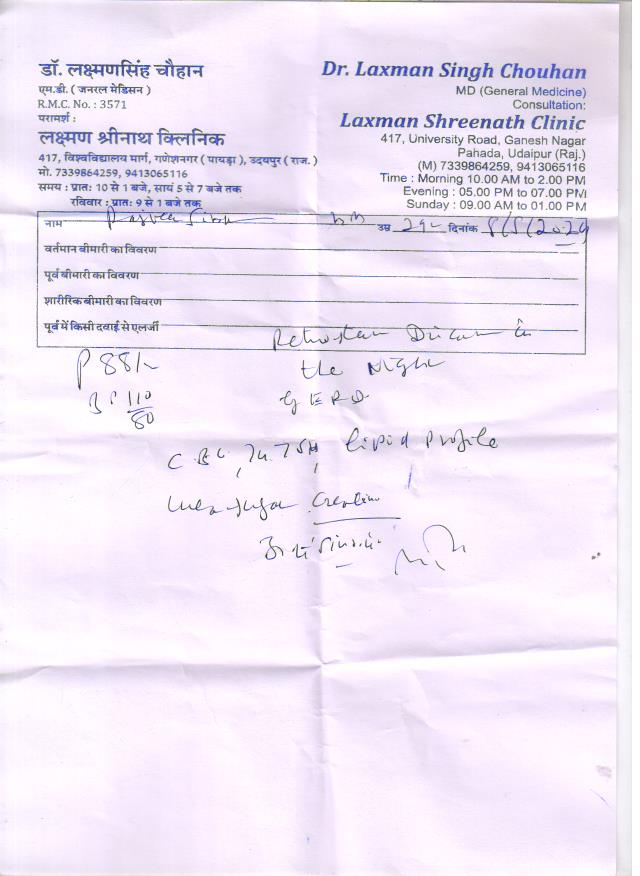 डॉ. लक्ष्मणसिंह चौहान
एम.डी. ( जनरल मेडिसन )
R.M.C. No. : 3571
परामर्श :
लक्ष्मण श्रीनाथ क्लिनिक
417, विश्वविद्यालय मार्ग, गणेशनगर ( पायड़ा ), उदयपुर ( राज. )
मो. 7339864259, 9413065116
समय : प्रातः 10 से 1 बजे, सायं 5 से 7 बजे तक
रविवार : प्रातः 9 से 1 बजे तक
Dr. Laxman Singh Chouhan
MD (General Medicine)
Consultation:
Laxman Shreenath Clinic
417, University Road, Ganesh Nagar
Pahada, Udaipur (Raj.)
(M) 7339864259, 9413065116
Time : Morning 10.00 AM to 2.00 PM
Evening : 05.00 PM to 07.00 PM
Sunday : 09.00 AM to 01.00 PM
नाम उम्र 29 दिनांक
वर्तमान बीमारी का विवरण
पूर्व बीमारी का विवरण
शारीरिक बीमारी का विवरण
पूर्व में किसी दवाई से एलर्जी
in
P 88/
the Night
BP 110/80
GERD
CBC, TSH, lipid profile